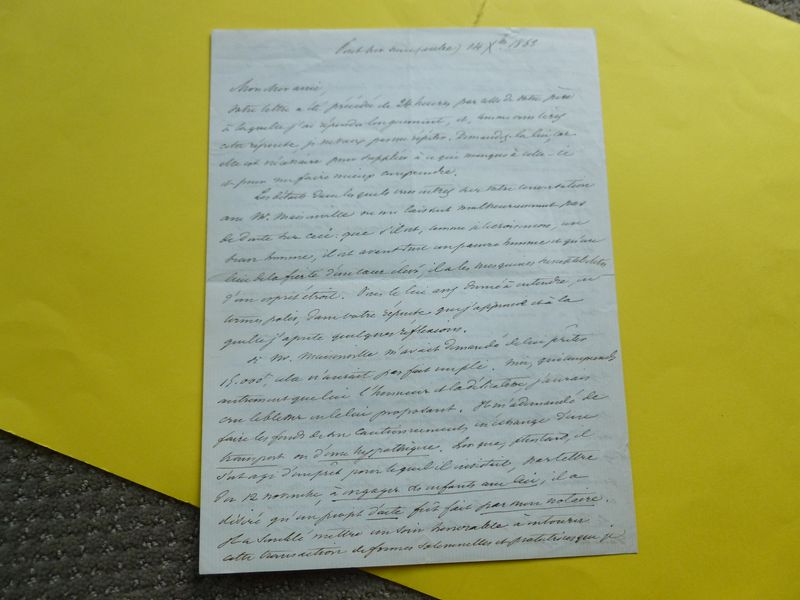 14 Xbre 1853
Mon cher ami,
Votre lettre a été précédée de 24 heures par celle de votre père
à laquelle j'ai répondu longuement, et, comme vous lirez
cette réponse, je ne veux pas me répéter. Demandez-la lui, car
elle est nécessaire pour suppléer à ce qui manque à celle-ci
et pour me faire mieux comprendre.
Les détails dans lesquels vous entrez sur votre conversation
avec Mr. ne me laissent malheureusement pas
de doute sur ceci: que s'il est, comme je le crois, un
brave homme, il est avant tout un pauvre homme et qu'au
lieu de la fierté d'un cœur élevé, il a les mesquines susceptibilités
d'un esprit étroit. Vous le lui avez donné à entendre, en
termes polis, dans votre réponse que j'approuve et à la
quelle j'ajoute quelques réflexions.
Si Mr. m'avait demandé de lui prêter
15.000f, cela n'aurait pas fait un pli. Moi, qui comprends
autrement que lui l'honneur et la délicatesse, j'aurais
cru le blesser en le lui proposant. Il m'a demandé de
faire les fonds de son cautionnement, en échange d'un
transport ou d'une hypothèque. Lorsque, plus tard, il
s'est agi d'un prêt pour lequel il consentait, par lettre
du 12 novembre, à engager ses enfants avec lui, il a
désiré qu'un projet d'acte fût fait par mon notaire.
Il a semblé mettre un soin honorable à entourer
cette transaction de formes solennelles et protectrices que je